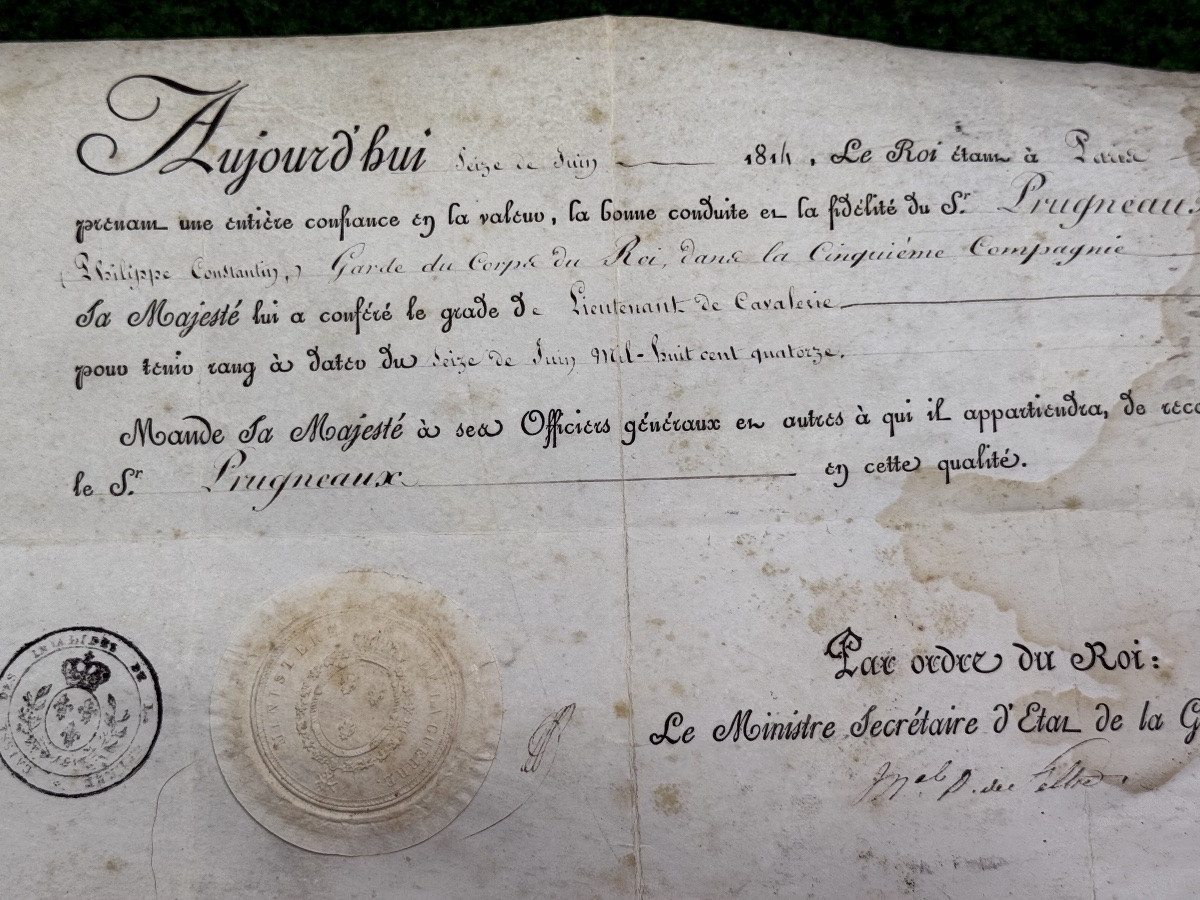 Aujourd'hui Seize de Juin 1814, Le Roi étant à Paris
prenant une entière confiance en la valeur, la bonne conduite et la fidélité du Sr. Prugneaux
(Philippe Constantin,) Garde du Corps du Roi, dans la Cinquième Compagnie
Sa Majesté lui a conféré le grade de Lieutenant de Cavalerie
pour tenir rang à dater du Seize de Juin Mil-huit cent quatorze.
Mande Sa Majesté à ses Officiers généraux et autres à qui il appartiendra, de reco
le Sr. Prugneaux en cette qualité.
Par ordre du Roi:
Le Ministre Secrétaire d'Etat de la G
Mal D. de Feltre
DES INVALIDES DE LA
MINISTÈRE LA GUERRE